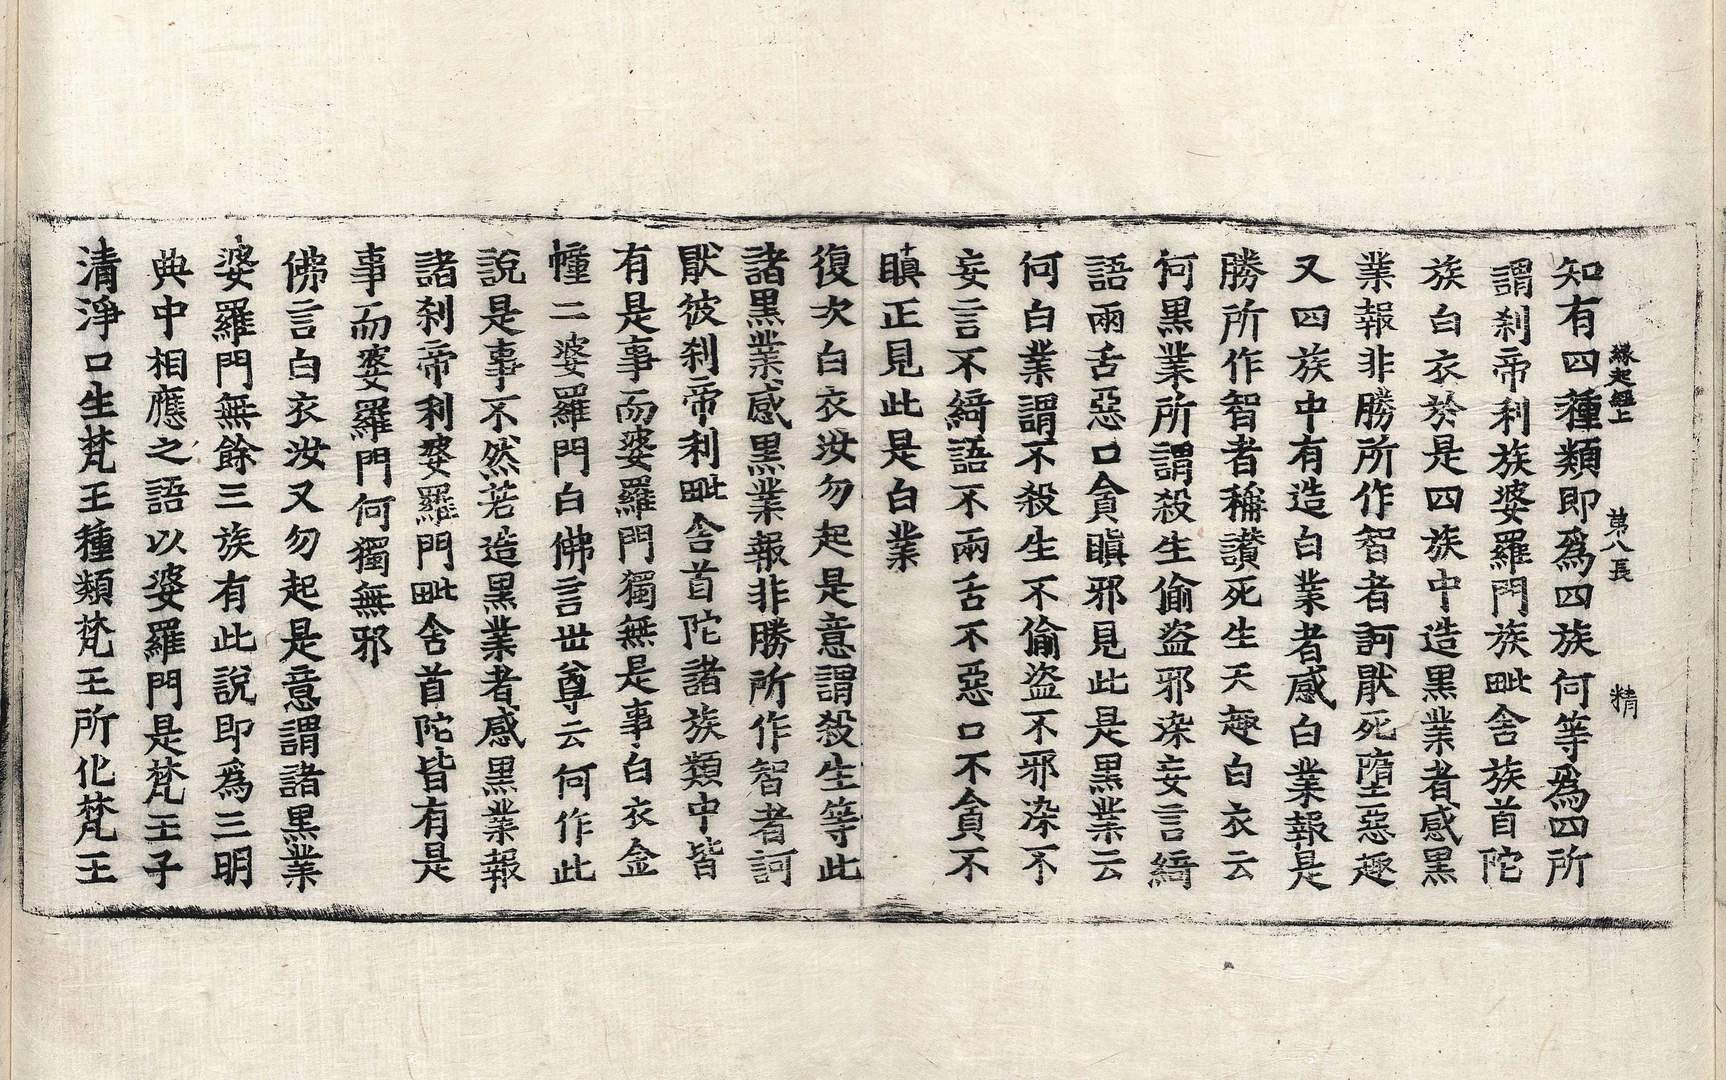 緣起經上　第八張　精
知有四種類即爲四族何等爲四所
謂刹帝利族婆羅門族毗舍族首陀
族白衣於是四族中造黑業者感黑
業報非勝所作智者訶厭死墮惡趣
又四族中有造白業者感白業報是
勝所作智者稱讃死生天趣白衣云
何黑業所謂殺生偷盜邪染妄言綺
語兩舌惡口貪瞋邪見此是黑業云
何白業謂不殺生不偷盜不邪染不
妄言不綺語不兩舌不惡口不貪不
瞋正見此是白業
復次白衣汝勿起是意謂殺生等此
諸黑業感黑業報非勝所作智者訶
厭彼刹帝利毗舍首陀諸族類中皆
有是事而婆羅門獨無是事白衣金
幢二婆羅門白佛言世尊云何作此
說是事不然若造黑業者感黑業報
諸刹帝利婆羅門毗舍首陀皆有是
事而婆羅門何獨無邪
佛言白衣汝又勿起是意謂諸黑業
婆羅門無餘三族有此說即爲三明
典中相應之語以婆羅門是梵王子
清淨口生梵王種類梵王所化梵王